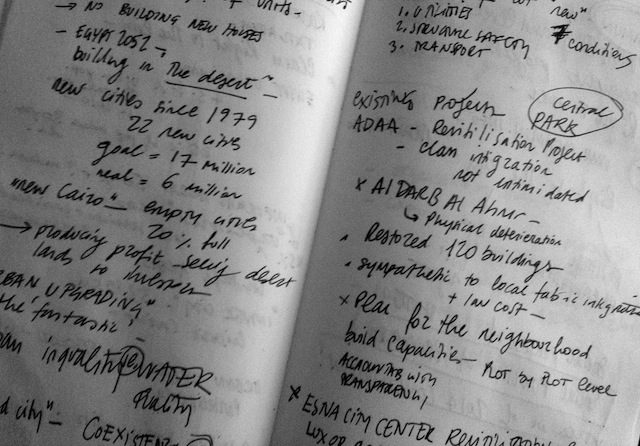 → NO BUILDING NEW HOUSES
- EGYPT 2052 -
building in "The desert"
new cities since 1979
22 new cities
goal = 17 million
real = 6 million
"new Cairo" - empty cities
20% full
→ producing profit selling desert
lands to
BAN UPGRADING"
the 'fantastic'
inquality @ WATER
d city" -
1. UTILITIES
2. STRUCTURE
conditions
3. TRANSPORT
existing Projects
Central
PARK
ADAA - Revitilisation Project
- class intigration
not intimidated
x Al DARB Al Ahmr -
↳ Physical deterioration
Restored 120 buildings
sympathetic to local fabric
+ low cost -
x Plan for the neighbourhood
build capacities - Plot by Plot level
ACCOUNTAB with
TRANSPARENCY
x ESNA CITY CENTER
LUXOR